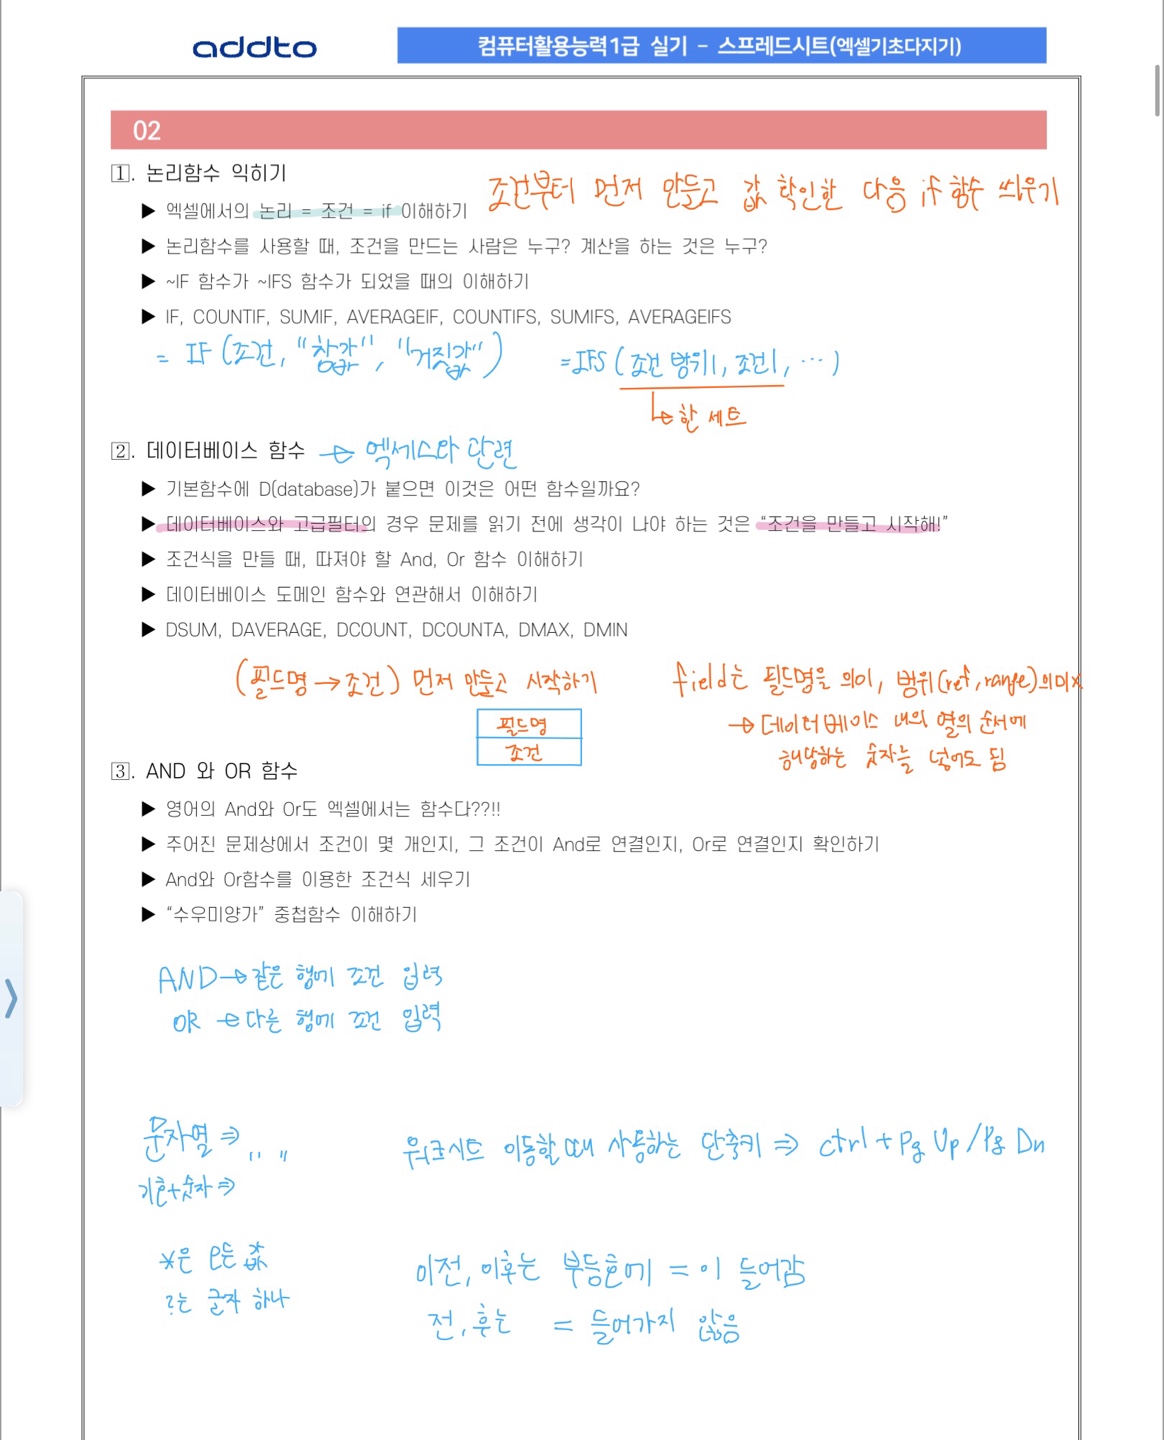 addto
컴퓨터활용능력1급 실기 - 스프레드시트(엑셀기초다지기)
02
1. 논리함수 익히기
조건부터 먼저 만들고 값 확인한 다음 if 함수 씌우기
▶ 엑셀에서의 논리 = 조건 = if 이해하기
▶ 논리함수를 사용할 때, 조건을 만드는 사람은 누구? 계산을 하는 것은 누구?
▶ ~IF 함수가 ~IFS 함수가 되었을 때의 이해하기
▶ IF, COUNTIF, SUMIF, AVERAGEIF, COUNTIFS, SUMIFS, AVERAGEIFS
= IF (조건, "참값", "거짓값")
=IFS (조건 범위1, 조건1, ...)
↳ 한 세트
2. 데이터베이스 함수 → 엑세스와 관련
▶ 기본함수에 D(database)가 붙으면 이것은 어떤 함수일까요?
▶ 데이터베이스와 고급필터의 경우 문제를 읽기 전에 생각이 나야 하는 것은 “조건을 만들고 시작해!”
▶ 조건식을 만들 때, 따져야 할 And, Or 함수 이해하기
▶ 데이터베이스 도메인 함수와 연관해서 이해하기
▶ DSUM, DAVERAGE, DCOUNT, DCOUNTA, DMAX, DMIN
(필드명 → 조건) 먼저 만들고 시작하기
필드명
조건
field는 필드명을 의미, 범위(ref, range)의미x
→ 데이터베이스 내의 열의 순서에
해당하는 숫자를 넣어도 됨
3. AND 와 OR 함수
▶ 영어의 And와 Or도 엑셀에서는 함수다??!!
▶ 주어진 문제상에서 조건이 몇 개인지, 그 조건이 And로 연결인지, Or로 연결인지 확인하기
▶ And와 Or함수를 이용한 조건식 세우기
▶ “수우미양가” 중첩함수 이해하기
AND → 같은 행에 조건 입력
OR → 다른 행에 조건 입력
문자열 ⇒ " "
기호+숫자 ⇒
워크시트 이동할 때 사용하는 단축키 ⇒ ctrl + Pg Up / Pg Dn
*은 모든 값
?는 글자 하나
이전, 이후는 부등호에 = 이 들어감
전, 후는 = 들어가지 않음